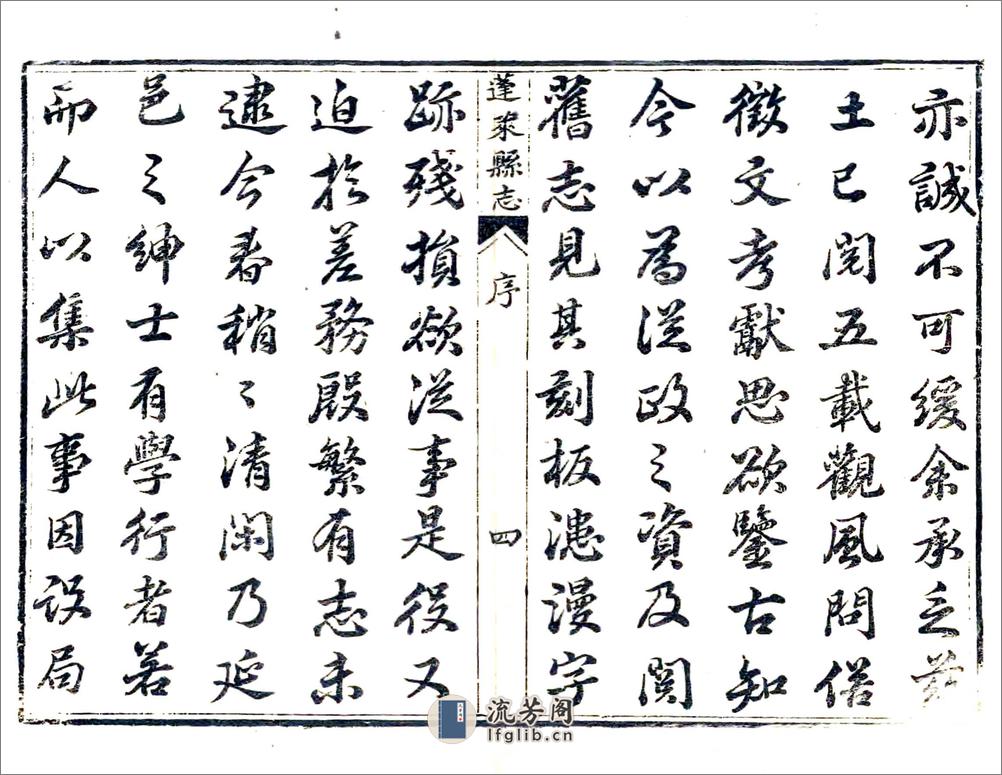 亦誠不可緩余承乏茲
土已閱五載觀風問俗
徵文考獻思欲鑒古知
今以為從政之資及閱
舊志見其刻板漶漫字
蓬萊縣志
序
四
跡殘損欲從事是役又
迫於差務殷繁有志未
逮今春稍〻清閑乃延
邑之紳士有學行者若
而人以集此事因設局
流芳阁
lfglib.cn